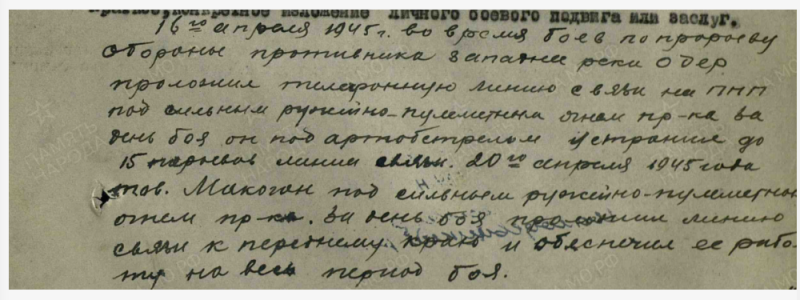 Краткое, конкретное изложение личного боевого подвига или заслуг.
16го апреля 1945 г. во время боев по прорыву
обороны противника западнее реки Одер
проложил телефонную линию связи на ПНП
под сильным ружейно-пулеметным огнем пр-ка за
день боя он под артобстрелом устранил до
15 порывов линии связи. 20го апреля 1945 года
тов. Макоган под сильным ружейно-пулеметным
огнем пр-ка. За день боя проложил линию
связи к переднему краю и обеспечил ее рабо-
ту на весь период боя.